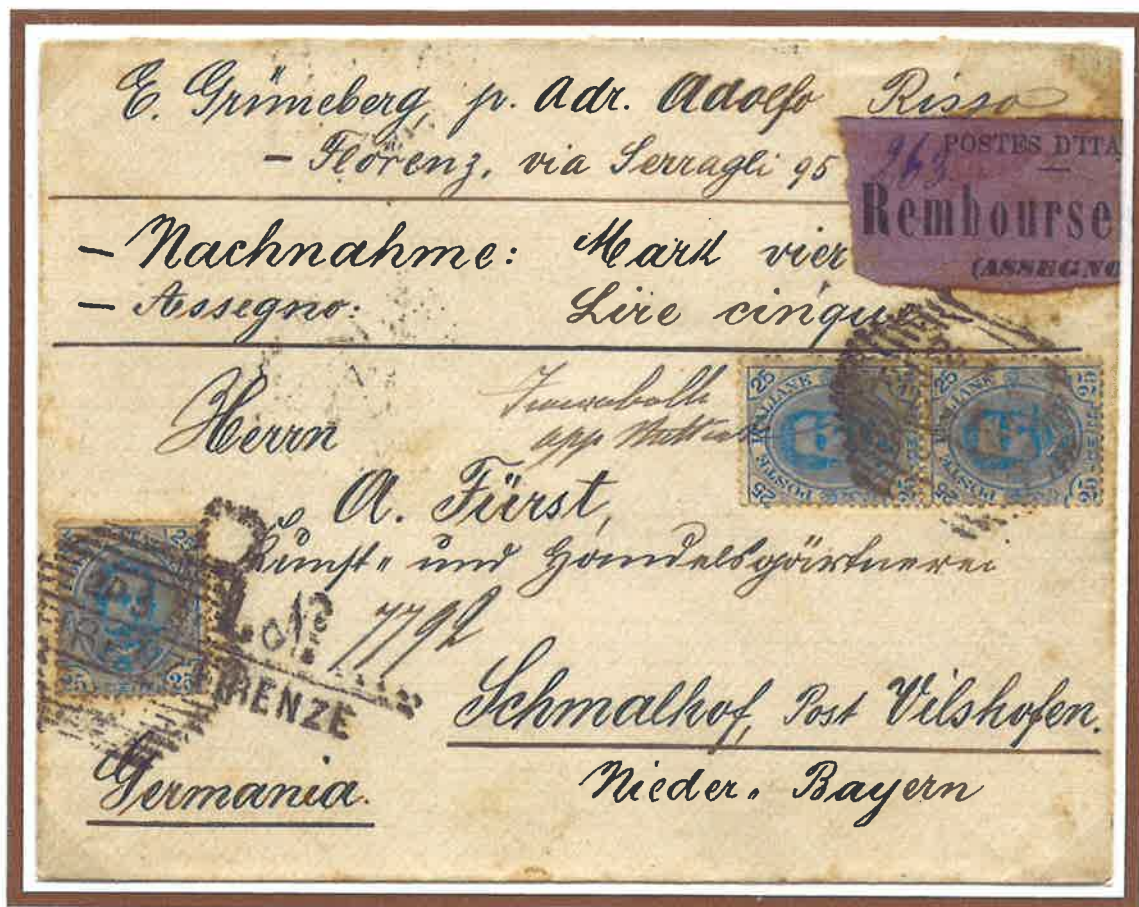 E. Grüneberg, p. Adr. Adolfo Risso
– Florenz, via Serragli 95
963
POSTES D'ITA
Rembourse
(ASSEGNO
– Nachnahme: Mark vier
– Assegno: Lire cinque
25 25
POSTE ITALIANE
25 25
25 25
POSTE ITALIANE
25 25
Herrn
A. Fürst,
Kunst- und Handelsgärtnerei
25
25 25
R
No 7792
FIRENZE
Schmalhof, Post Vilshofen.
Nieder- Bayern
Germania.